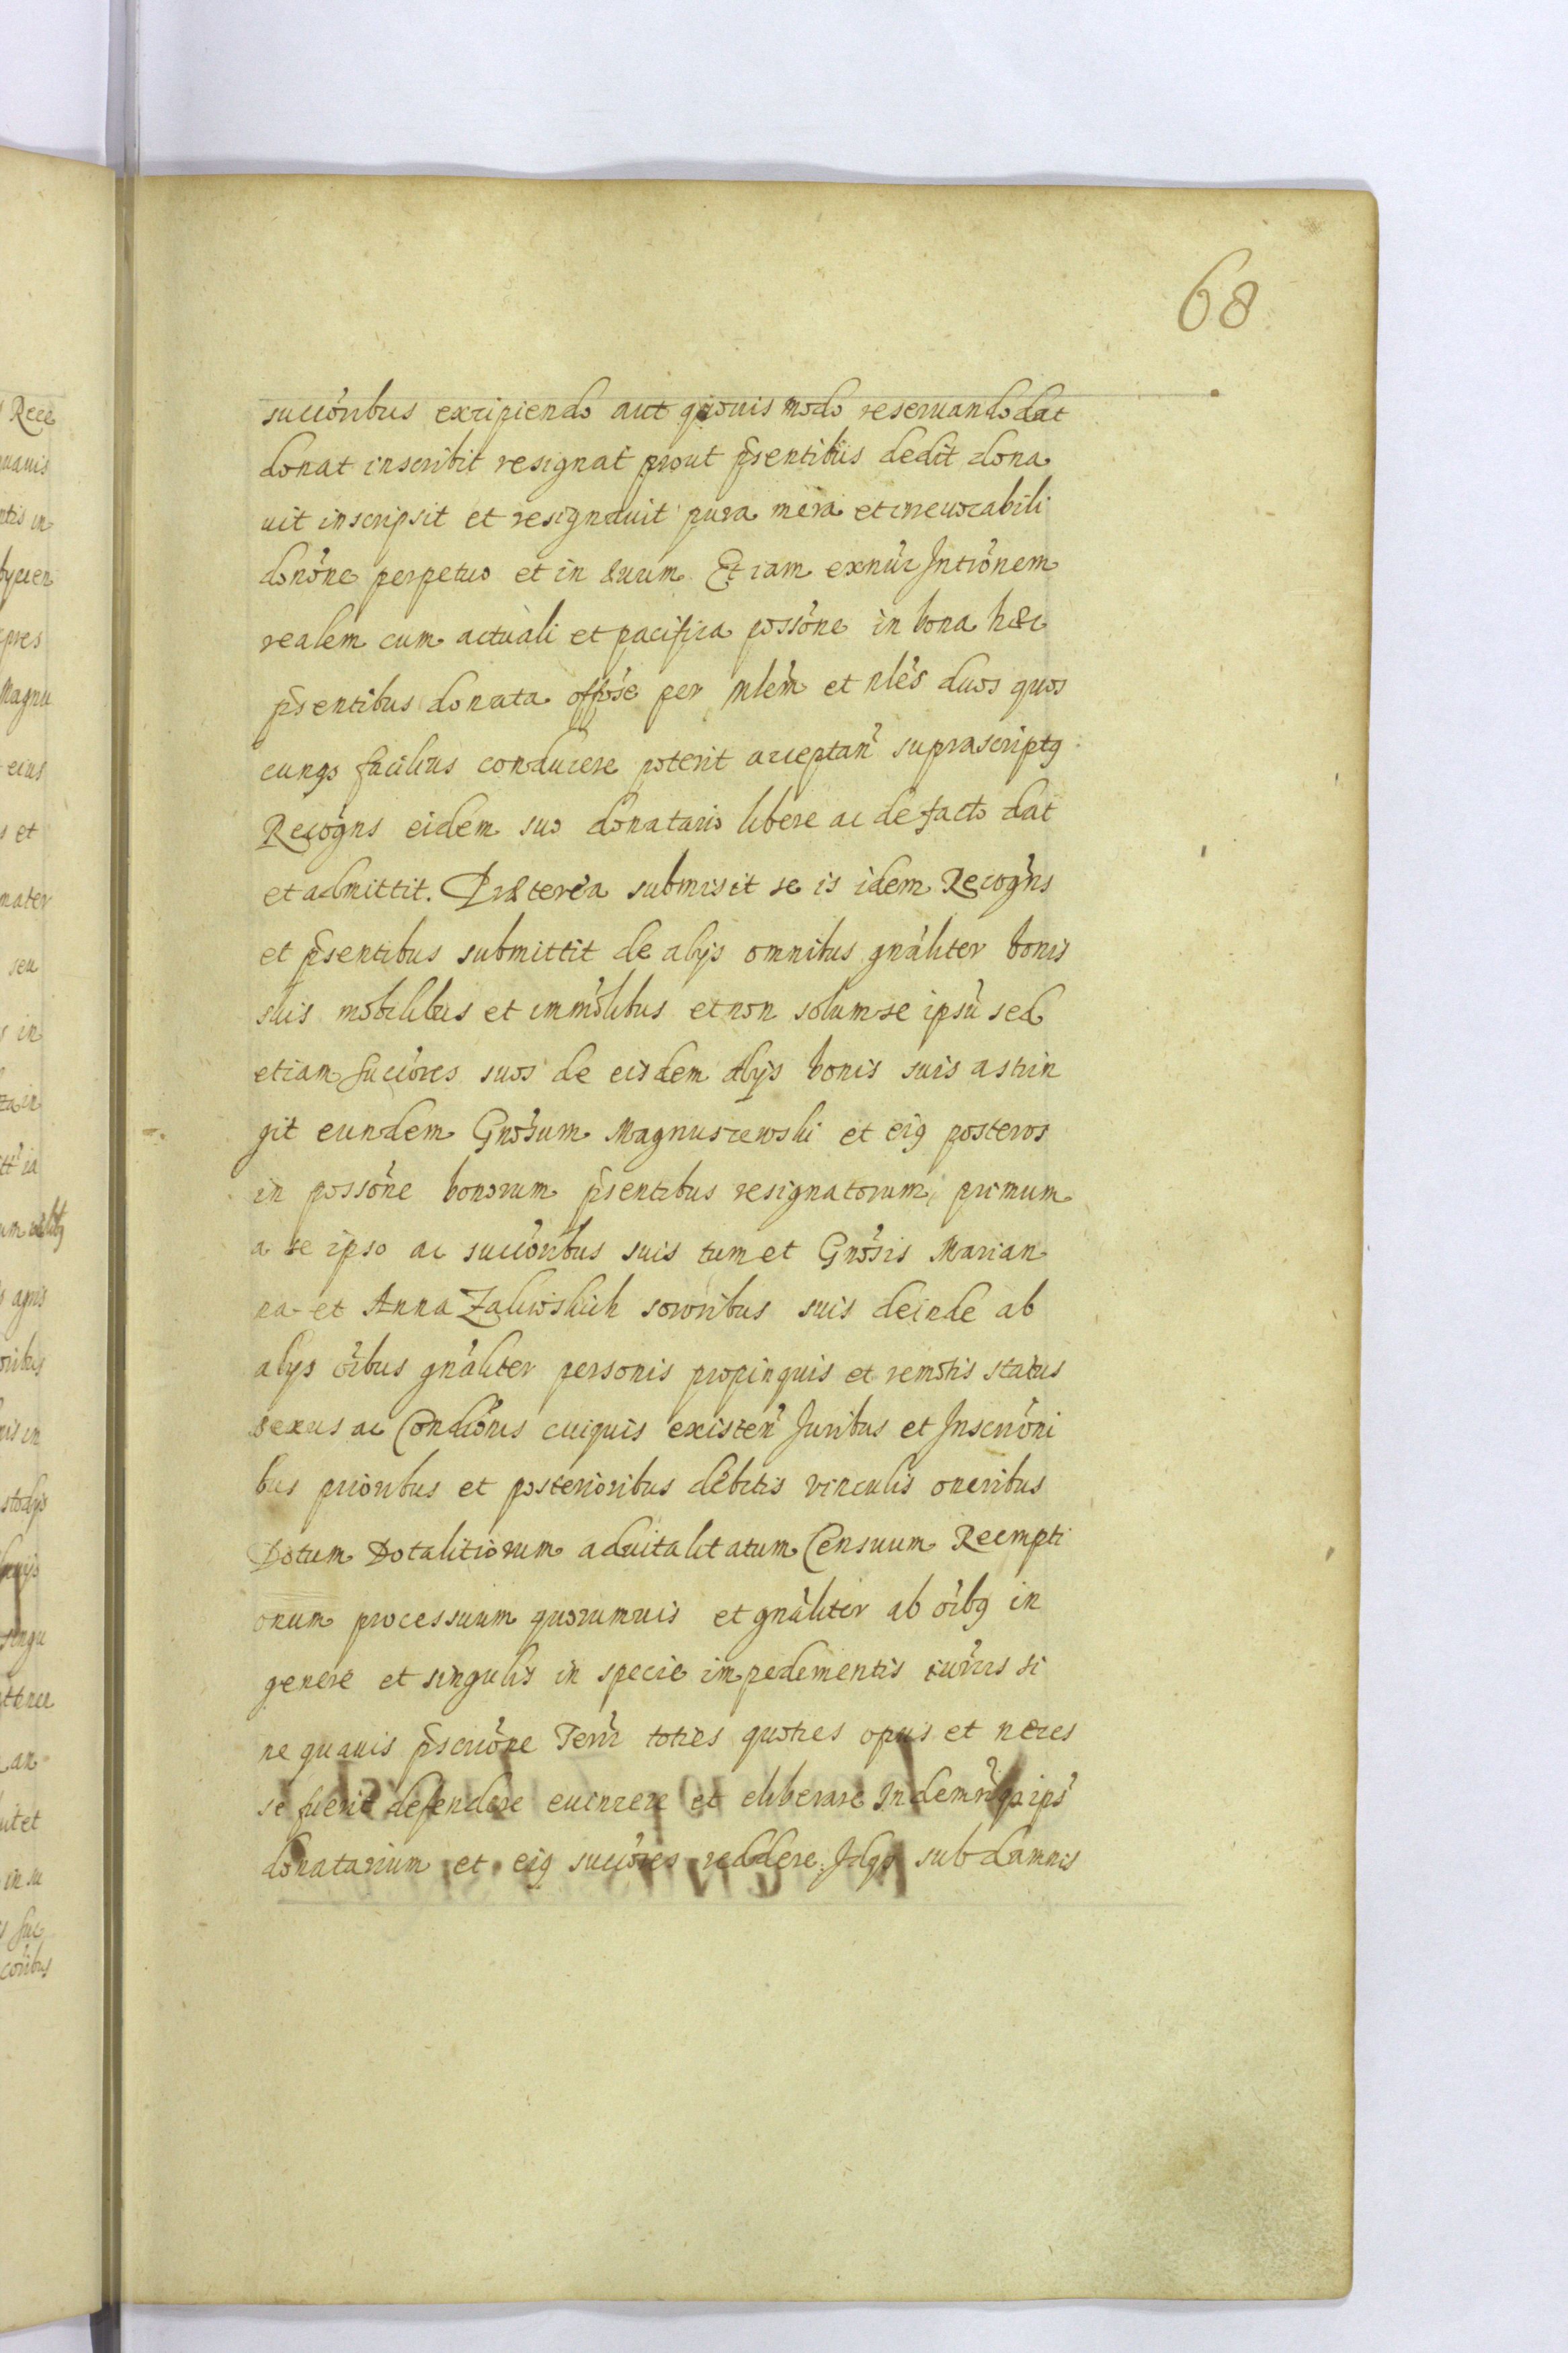 68
succõribus excipiendo aut quouis modo reseruando dat
donat inscribit resignat prout p̃sentibus dedit dona
uit inscripsit et resignauit pura mera et irreuocabili
donõne perpetuo et in æuum Et iam exnũc Intrõnem
realem cum actuali et pacifica possõne in bona hæc
p̃sentibus donata offõse per mlẽm et nlẽs duos quos
cunq facilius conducere poterit acceptañ suprascriptq
Recogñs eidem suo donatario libere ac de facto dat
et admittit. Præterea submisit se is idem Recogñs
et p̃sentibus submittit de alys omnibus gnãliter bonis
suis mobilibus et immõlibus et non solum se ipsũ sed
etiam succõres suos de eisdem alys bonis suis astrin
git eundem Gnõsum Magnuszewski et eiq posteros
in possõne bonorum p̃sentibus resignatorum primum
a se ipso ac succõribus suis tum et Gnõsis Marian
na et Anna Zaliwskich sororibus suis deinde ab
alys õibus gnãliter personis propinquis et remotis status
sexus ac Condiõnis cuiquis existeñ Juribus et Inscriõni
bus prioribus et posterioribus debitis vinculis oneribus
Dotum Dotalitiorum aduitalitatum Censuum Reempti
onum processuum quorumuis et gnãliter ab õibq in
genere et singulis in specie impedimentis iuriũs si
ne quauis p̃scriõne Terr̃ toties quoties opus et neces
se fuerit defendere euincere et eliberare Indemñq ips̃
donatarium et eiq succõres reddere Idq sub damnis